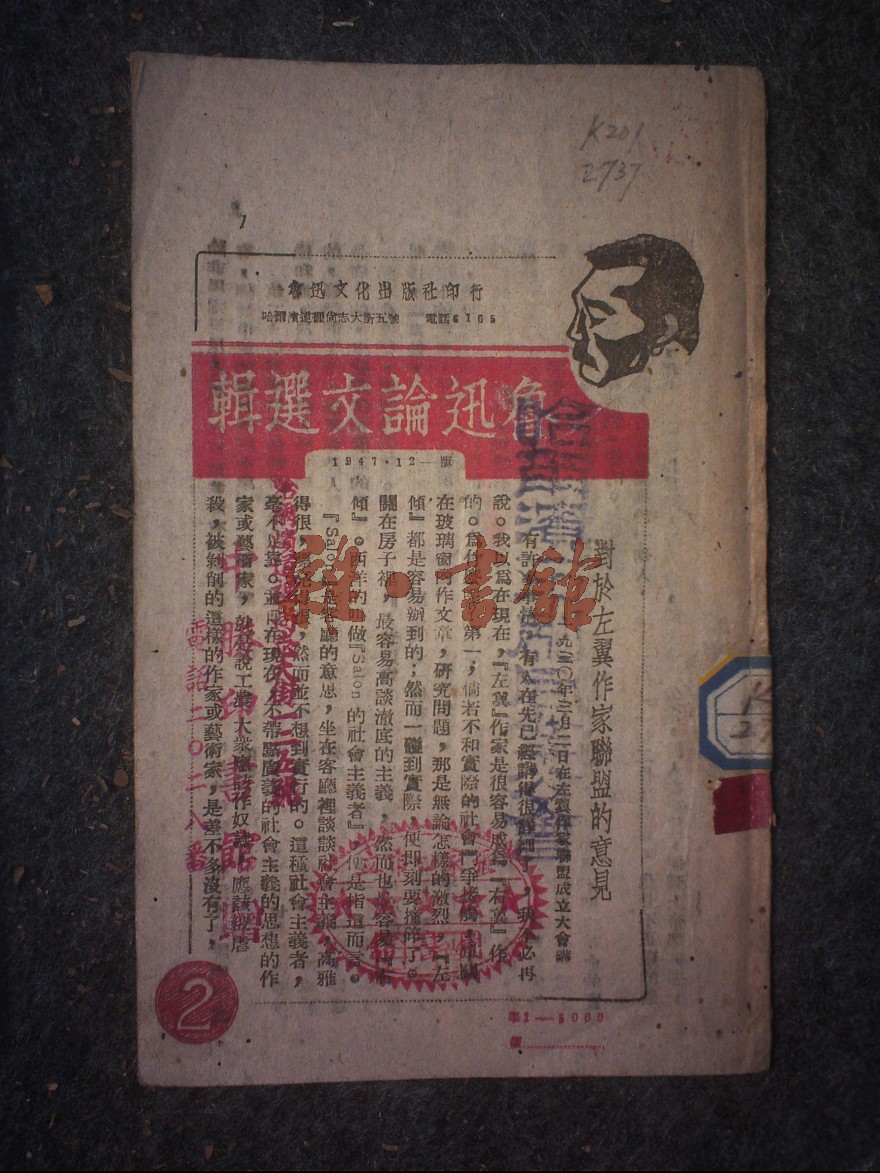 K201
2737
魯迅文化出版社印行
哈爾濱道裡尚志大街五號 電話6165
魯迅論文選輯
1947·12—版
對於左翼作家聯盟的意見
九三〇年三月二日在左翼作家聯盟成立大會講
有許多事情,有人在先已經講得很詳細了,我不必再
說。我以為在現在,『左翼』作家是很容易成為『右翼』作
的。為什麼呢?第一,倘若不和實際的社會鬥爭接觸,單關
在玻璃窗內作文章,研究問題,那是無論怎樣的激烈,『左
傾』都是容易辦到的;然而一碰到實際,便即刻要撞碎了。
關在房子裡,最容易高談澈底的主義,然而也最容易『右
傾』。西洋的叫做『Salon的社會主義者』,便是指這而言。
『Salon』是客廳的意思,坐在客廳裡談談社會主義,高雅
得很,漂亮得很,然而並不想到實行的。這種社會主義者,
毫不足靠。並且在現在,不帶點廣義的社會主義的思想的作
家或藝術家,就是說工農大衆應該作奴隸,應該被虐
殺,被剝削的這樣的作家或藝術家,是差不多沒有了,
雜·書館
2
1—5000